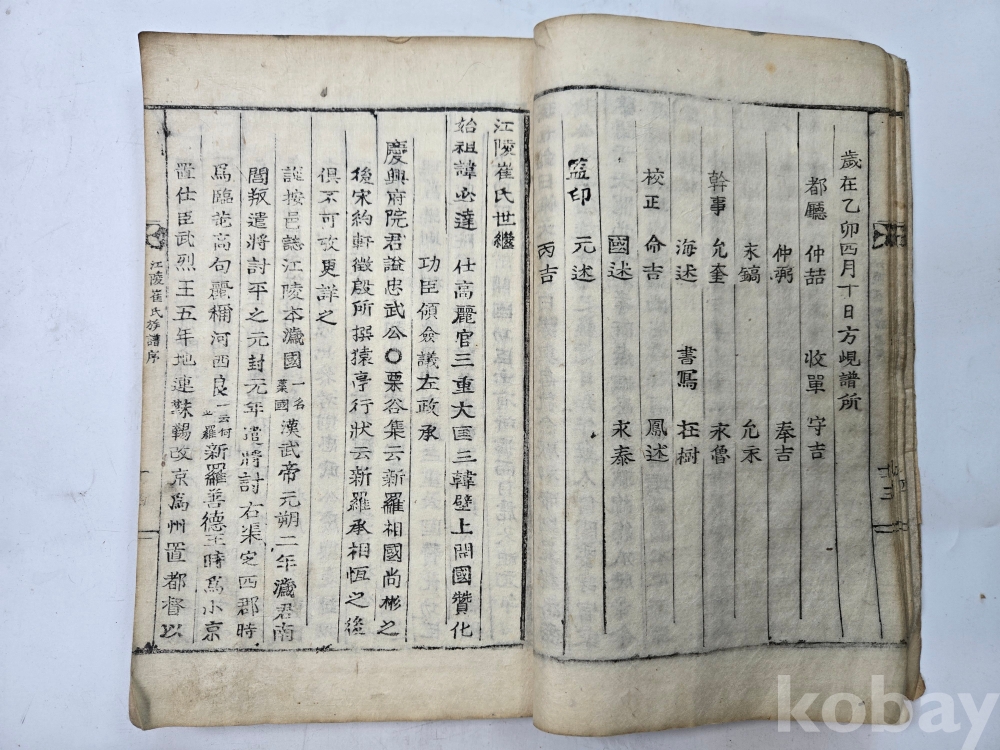 歲在乙卯四月十日方峴譜所
都廳 仲喆 收單 宇吉
仲弼 奉吉
永鎬 允永
幹事 允奎 永魯
海述 書寫 在樹
校正 命吉 鳳述
國述 求泰
監印 元述
丙吉
江陵崔氏世繼
始祖諱必達 仕高麗官三重大匡三韓壁上開國贊化
功臣領僉議左政丞
慶興府院君諡忠武公○栗谷集云新羅相國尚彬之
後宋約軒徵殷所撰猿亭行狀云新羅承相恆之後
俱不可攷更詳之
謹按邑誌江陵本濊國一名蘂國漢武帝元朔二年濊君南
閭叛遣將討平之元封元年遣將討右渠定四郡時
爲臨芚高句麗稱河西良一云何瑟羅新羅善德王時爲小京
置仕臣武烈王五年地連靺鞨改京爲州置都督以
江陵崔氏族譜序
kobay